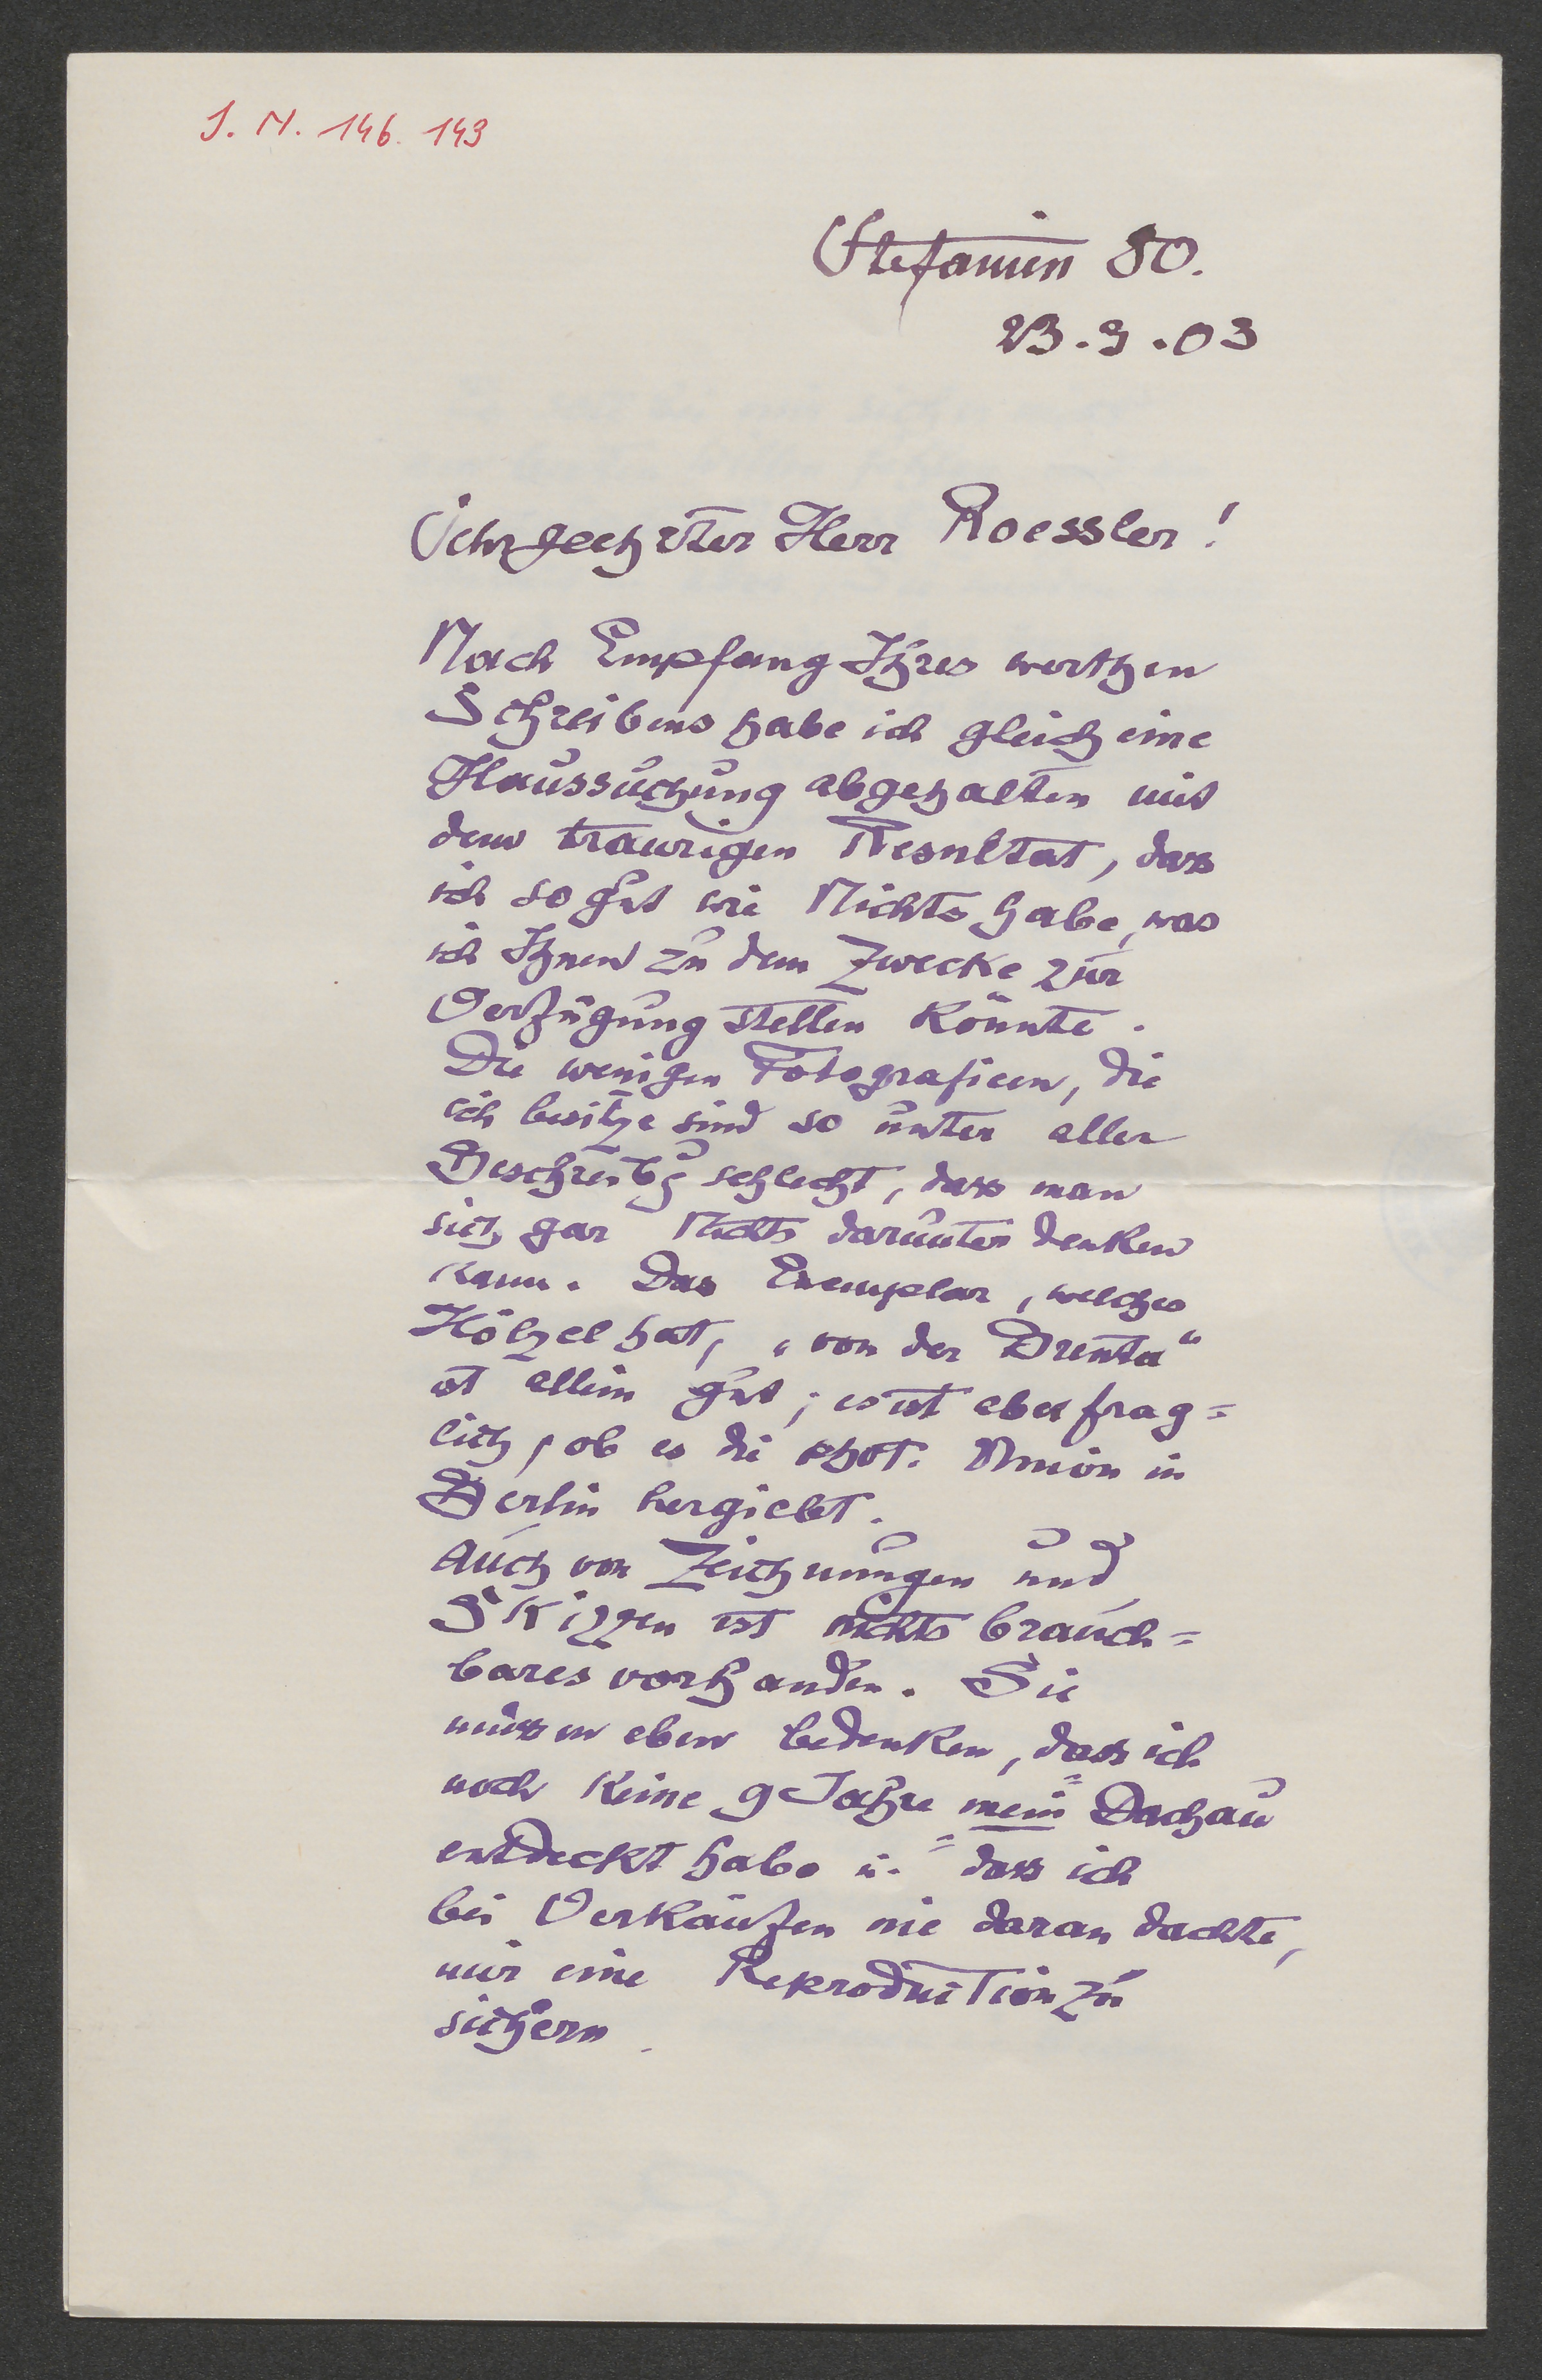 J. N. 146. 143
Stefanien 80.
23.9.03
Sehrgeehrter Herr Roessler!
Nach Empfang Ihres werthen
Schreibens habe ich gleich eine
Haussuchung abgehalten mit
dem traurigen Resultat, dass
ich so gut wie Nichts habe, was
ich Ihnen zu dem Zwecke zur
Verfügung stellen könnte.
Die wenigen Fotografieen, die
ich besitze sind so unter aller
Beschreibg schlecht, dass man
sich gar Nichts darunter denken
kann. Das Exemplar, welches
Hölzel hat, „von der Brenta“
ist allein gut; es ist aber frag=
lich, ob es die phot. Union in
Berlin hergiebt.
Auch von Zeichnungen und
Skizzen ist nichts brauch=
bares vorhanden. Sie
müssen eben bedenken, dass ich
noch keine 9 Jahre "mein" Dachau
entdeckt habe u. dass ich
bei Verkäufen nie daran dachte,
mir eine Reproduction zu
sichern.